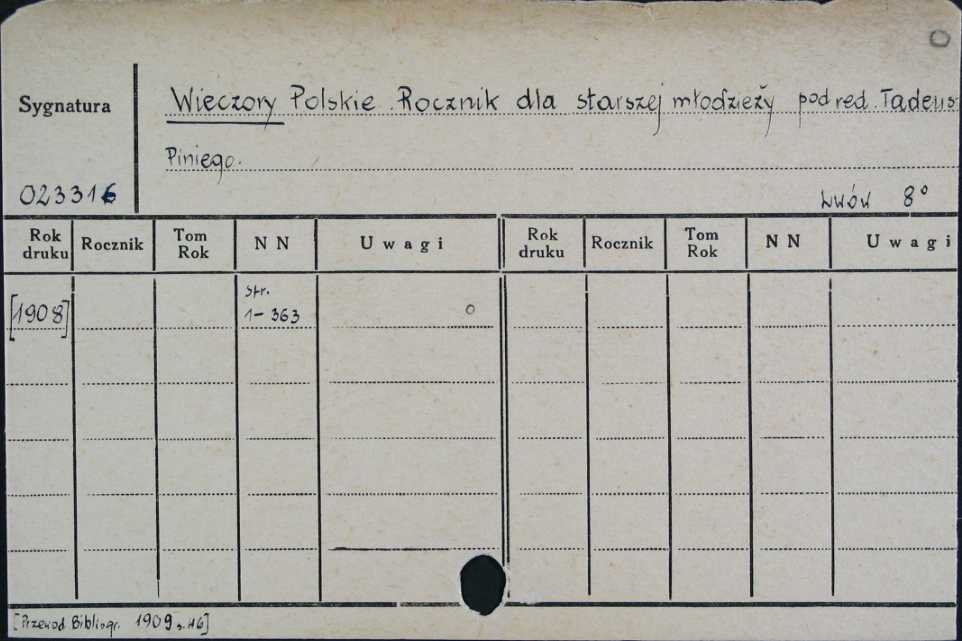 Sygnatura
Wieczory Polskie. Rocznik dla starszej młodzieży pod red. Tadeus
Piniego.
023316
Lwów 8°
Rok druku Rocznik Tom Rok N N Uwagi Rok druku Rocznik Tom Rok N N Uwagi
[1908] str. 1-363
[Przewod Bibliogr. 1909 s. 116]